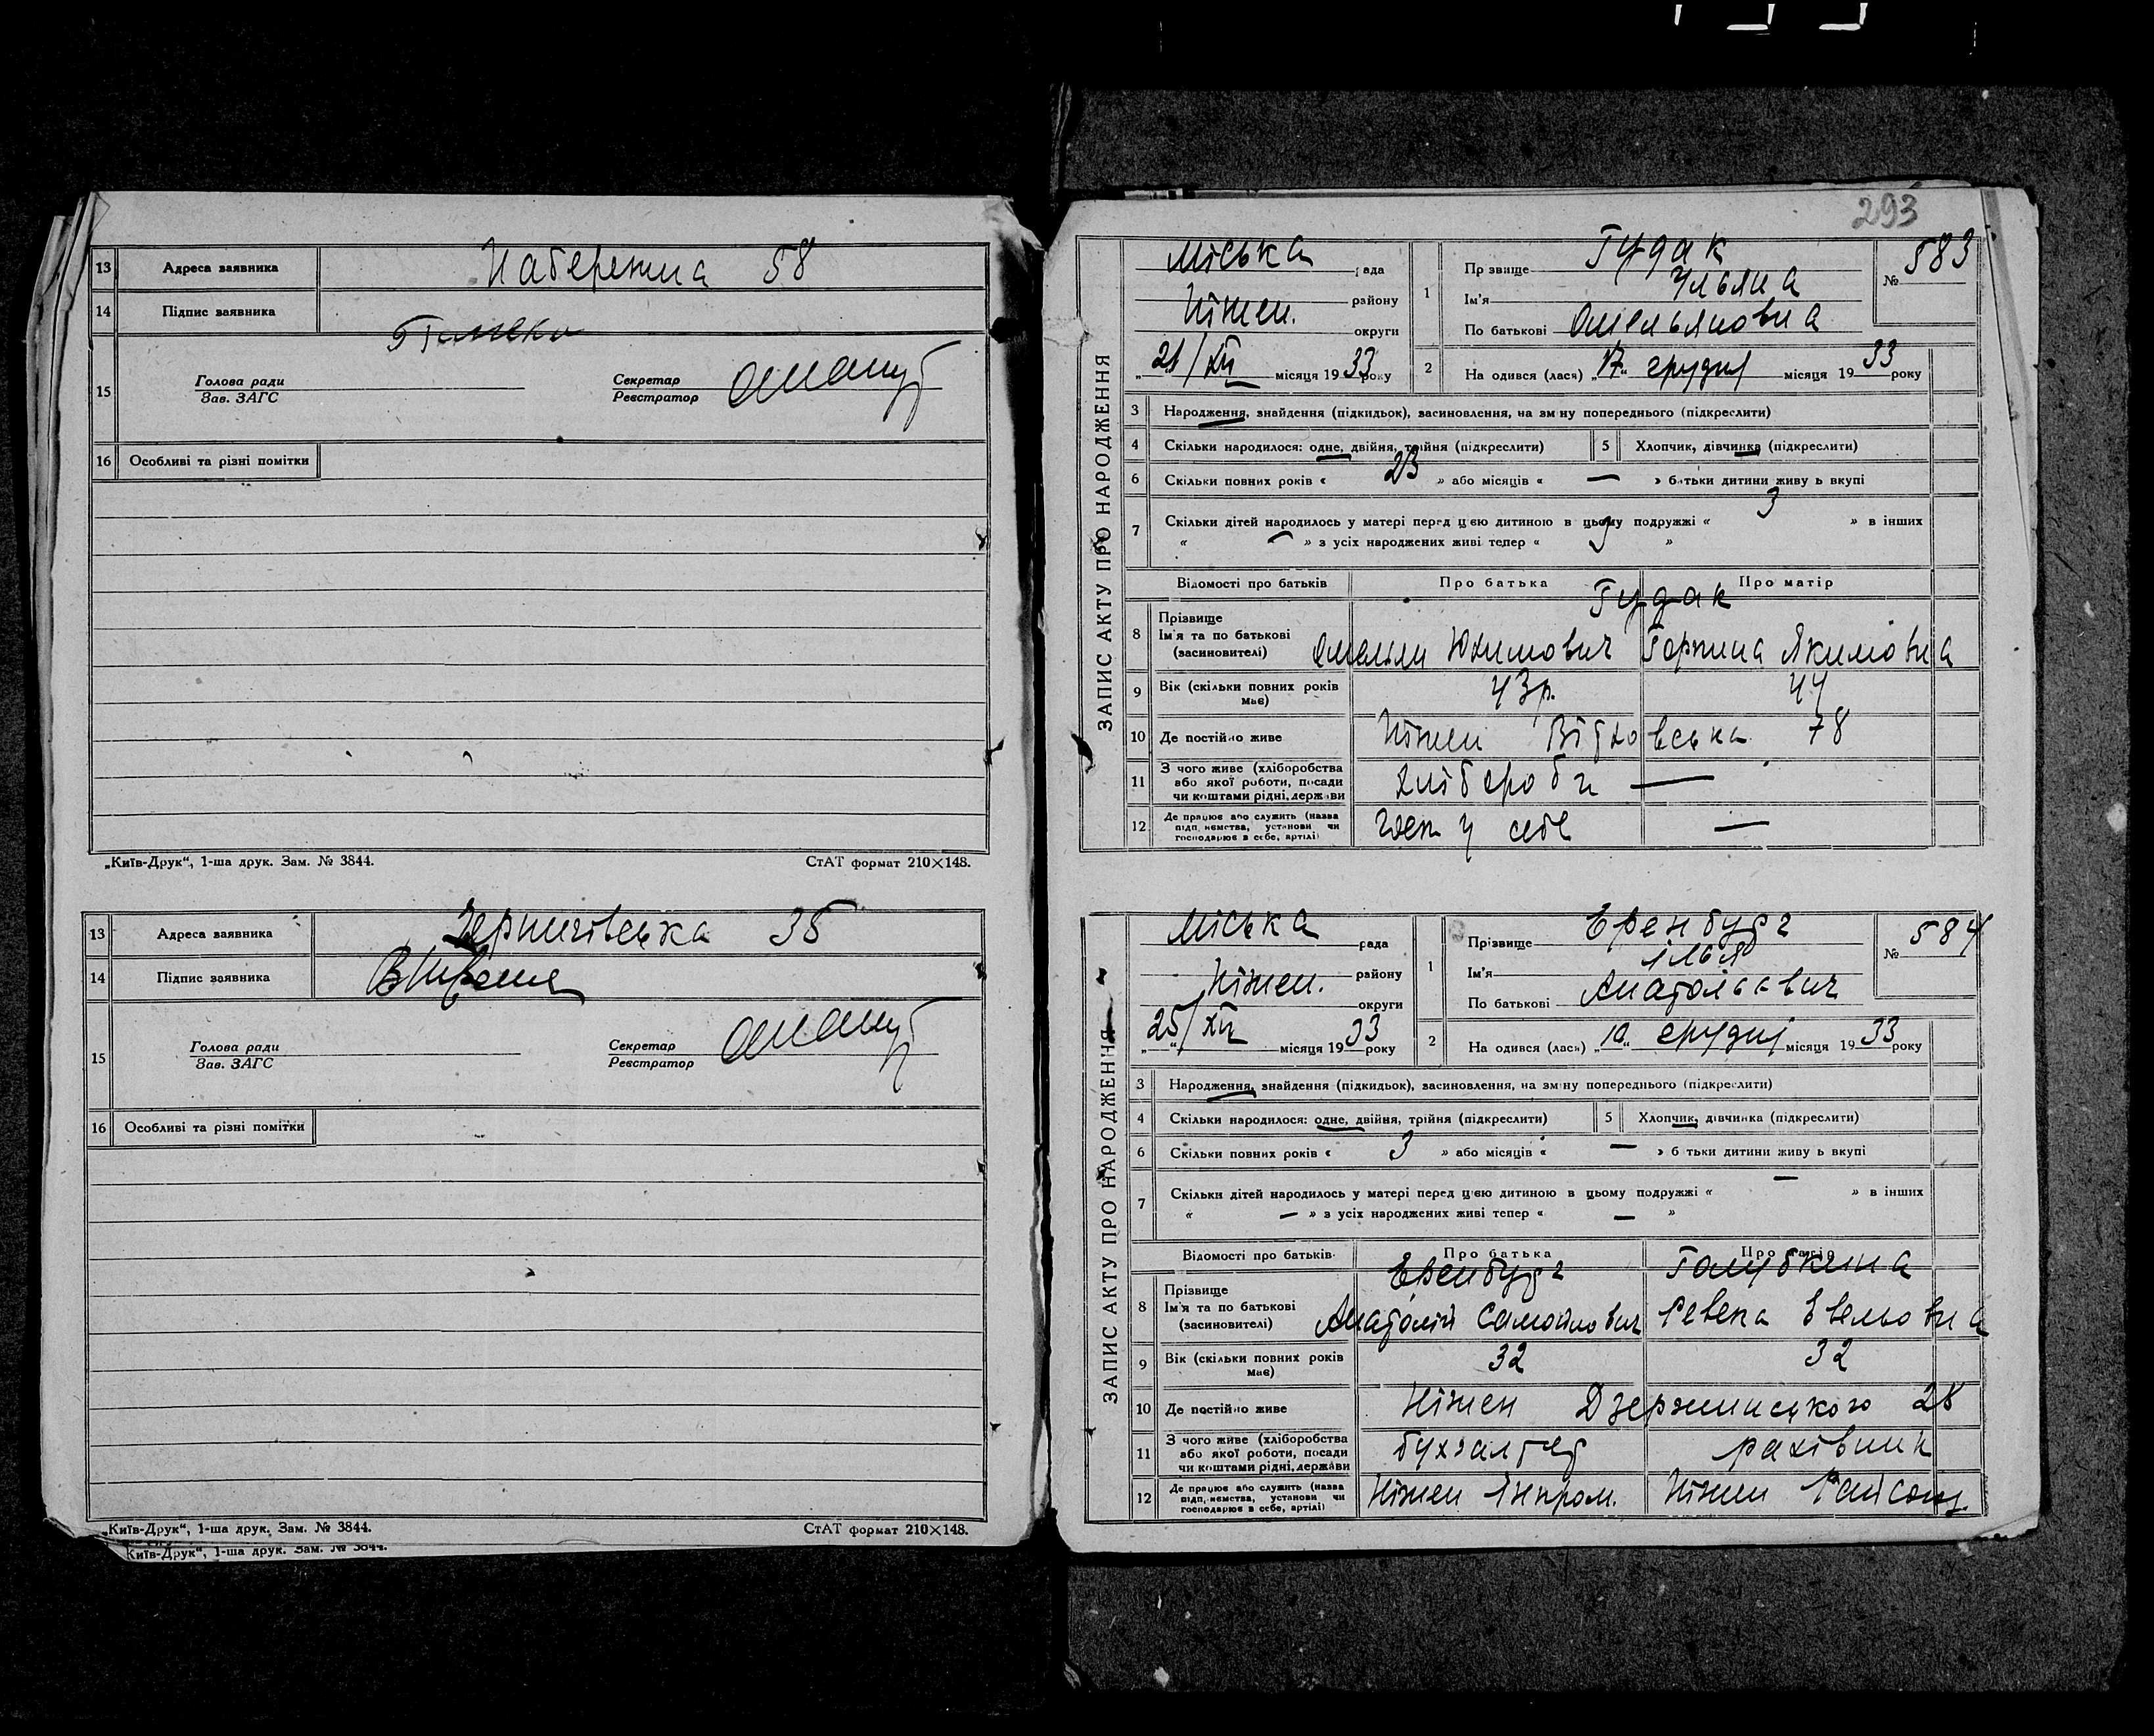 13 Адреса заявника Набережна 58
14 Підпис заявника
15 Голова ради
Зав. ЗАГС
Секретар
Реєстратор
16 Особливі та різні помітки
„Київ-Друк“, 1-ша друк. Зам. № 3844. СтАТ формат 210×148.
13 Адреса заявника Чернигівська 35
14 Підпис заявника
15 Голова ради
Зав. ЗАГС
Секретар
Реєстратор
16 Особливі та різні помітки
„Київ-Друк“, 1-ша друк. Зам. № 3844. СтАТ формат 210×148.
Київ-Друк“, 1-ша друк. Зам. № 3844.
293
ЗАПИС АКТУ ПРО НАРОДЖЕННЯ
Міська рада
Ніжен. району
округи
„21/XII місяця 1933 року
1 Прізвище Гудак
Ім'я Ульяна
По батькові Омельяновна
№ 583
2 Народився (лася) „17“ грудня місяця 1933 року
3 Народження, знайдення (підкидьок), засиновлення, на зміну попереднього (підкреслити)
4 Скільки народилося: одне, двійня, трійня (підкреслити) 5 Хлопчик, дівчинка (підкреслити)
6 Скільки повних років « 23 » або місяців « — » батьки дитини живуть вкупі
7 Скільки дітей народилось у матері перед цією дитиною в цьому подружжі « 3 » в інших
« — » з усіх народжених живі тепер « 3 »
Відомості про батьків Про батька Про матір
8 Прізвище Гудак
Ім'я та по батькові Омельян Юхимович Горпина Якимовна
(засиновителі)
9 Вік (скільки повних років 43 р. 44
має)
10 Де постійно живе Ніжен 78
11 З чого живе (хліборобства
або якої роботи, посади хлібероби —
чи коштами рідні, держави
12 Де працює або служить (назва
підприємства, установи чи у себе —
господарює в себе, артілі)
ЗАПИС АКТУ ПРО НАРОДЖЕННЯ
Міська рада
Ніжен. району
округи
„25/XII місяця 1933 року
1 Прізвище Еренбург
Ім'я Ілья
По батькові Анатольевич
№ 584
2 Народився (лася) „10“ грудня місяця 1933 року
3 Народження, знайдення (підкидьок), засиновлення, на зміну попереднього (підкреслити)
4 Скільки народилося: одне, двійня, трійня (підкреслити) 5 Хлопчик, дівчинка (підкреслити)
6 Скільки повних років « 3 » або місяців « — » батьки дитини живуть вкупі
7 Скільки дітей народилось у матері перед цією дитиною в цьому подружжі « — » в інших
« — » з усіх народжених живі тепер « — »
Відомості про батьків Про батька Про матір
8 Прізвище Еренбург Голубкина
Ім'я та по батькові Анатолій Самойлович Ревека Евельовна
(засиновителі)
9 Вік (скільки повних років 32 32
має)
10 Де постійно живе Ніжен Дзержинського 28
11 З чого живе (хліборобства
або якої роботи, посади бухгалтер рахівник
чи коштами рідні, держави
12 Де працює або служить (назва
підприємства, установи чи Ніжен Інпром. Ніжен
господарює в себе, артілі)